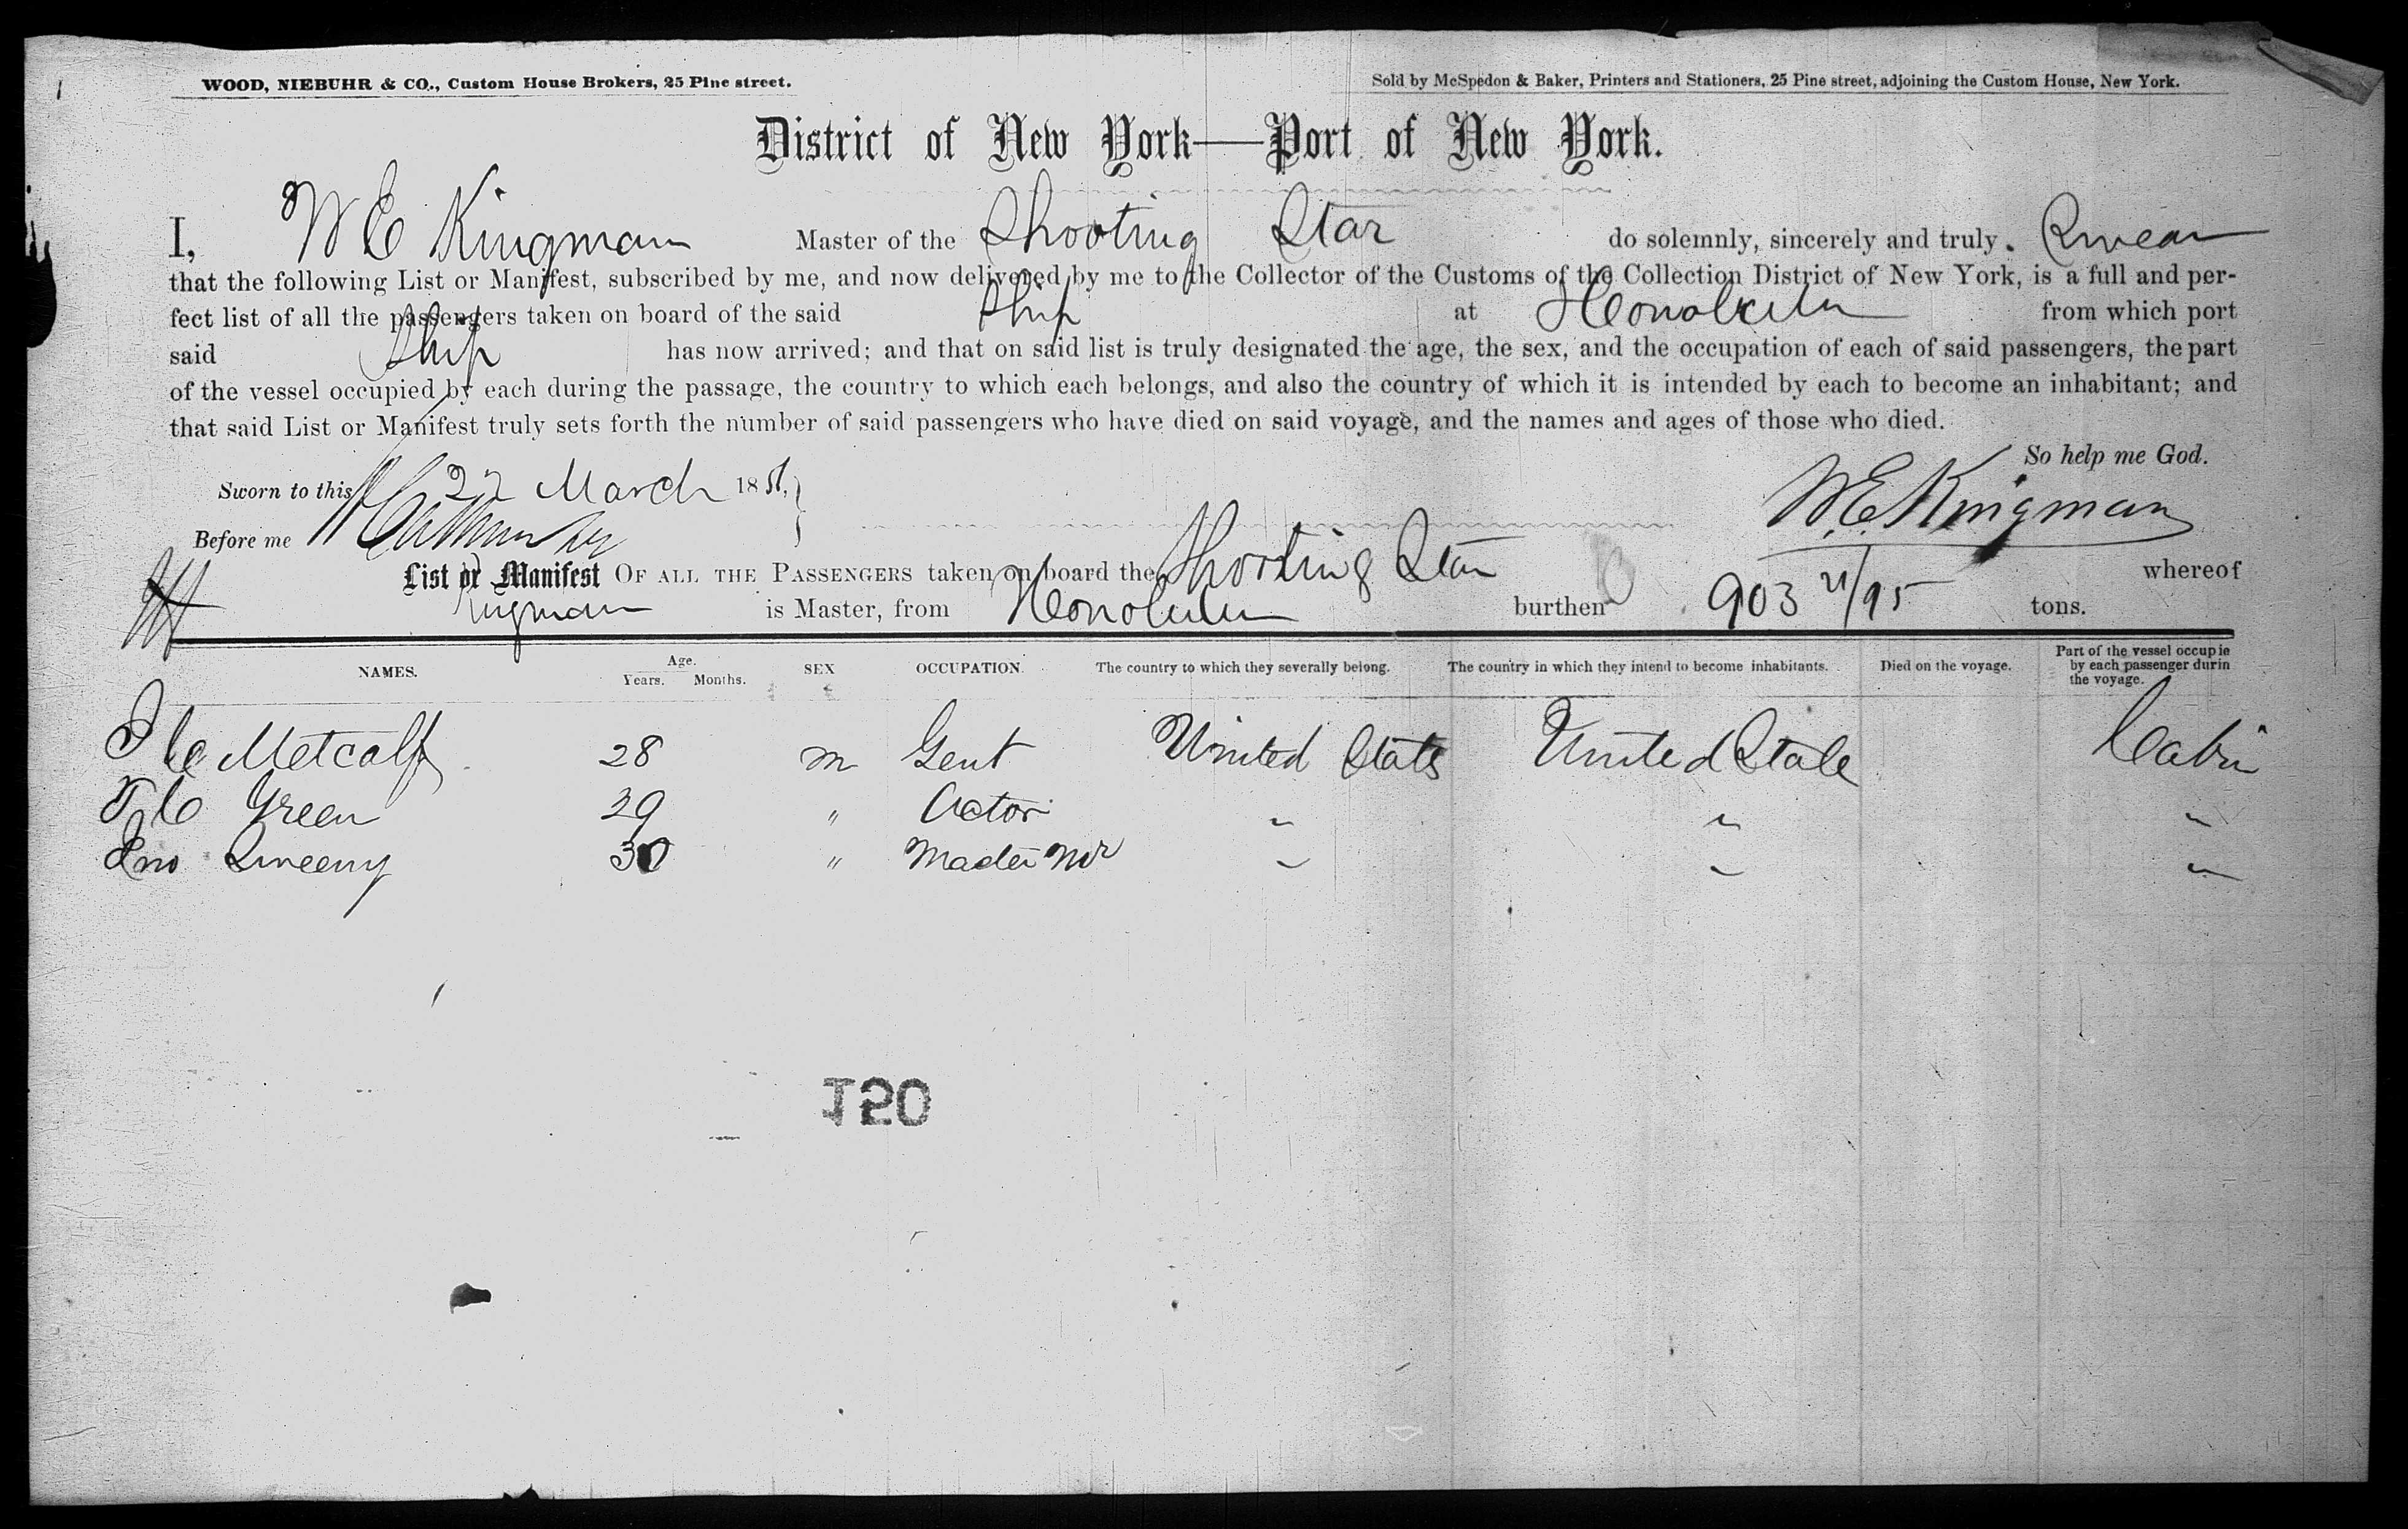 WOOD, NIEBUHR & CO., Custom House Brokers, 25 Pine street.
Sold by McSpedon & Baker, Printers and Stationers, 25 Pine street, adjoining the Custom House, New York.
District of New York—Port of New York.
I, W E Kingman Master of the Shooting Star do solemnly, sincerely and truly Swear
that the following List or Manifest, subscribed by me, and now delivered by me to the Collector of the Customs of the Collection District of New York, is a full and per-
fect list of all the passengers taken on board of the said Ship at Honolulu from which port
said Ship has now arrived; and that on said list is truly designated the age, the sex, and the occupation of each of said passengers, the part
of the vessel occupied by each during the passage, the country to which each belongs, and also the country of which it is intended by each to become an inhabitant; and
that said List or Manifest truly sets forth the number of said passengers who have died on said voyage, and the names and ages of those who died.
So help me God.
Sworn to this 22 March 185
W.E. Kingman
Before me
List or Manifest OF ALL THE PASSENGERS taken on board the Shooting Star whereof
Kingman is Master, from Honolulu burthen 903 21/95 tons.
NAMES. Age. Years. Months. SEX OCCUPATION. The country to which they severally belong. The country in which they intend to become inhabitants. Died on the voyage. Part of the vessel occupie by each passenger durin the voyage.
Metcalf 28 m Gent United States United State Cabin
Green 29 " Actor " " "
Jno Sweeny 30 " Master Mr " " "
120